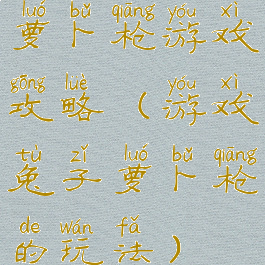 luó bǔ qiāng yóu xì
萝卜枪游戏
gōng lüè yóu xì
攻略（游戏
tù zǐ luó bǔ qiāng
兔子萝卜枪
de wán fǎ
的玩法）